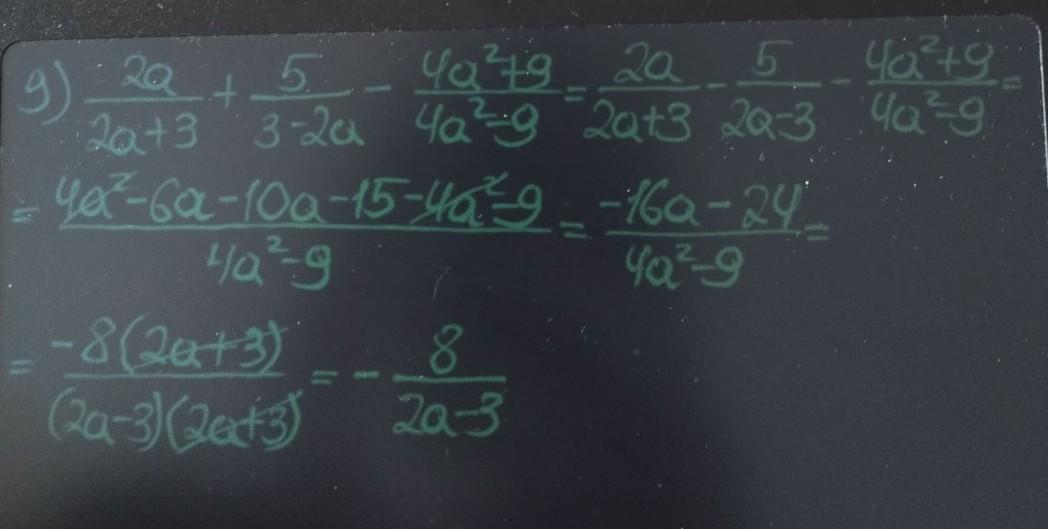 9) \frac{2a}{2a+3} + \frac{5}{3-2a} - \frac{4a^2+9}{4a^2-9} = \frac{2a}{2a+3} - \frac{5}{2a-3} - \frac{4a^2+9}{4a^2-9} =
= \frac{4a^2-6a-10a-15-4a^2-9}{4a^2-9} = \frac{-16a-24}{4a^2-9} =
= \frac{-8(2a+3)}{(2a-3)(2a+3)} = -\frac{8}{2a-3}